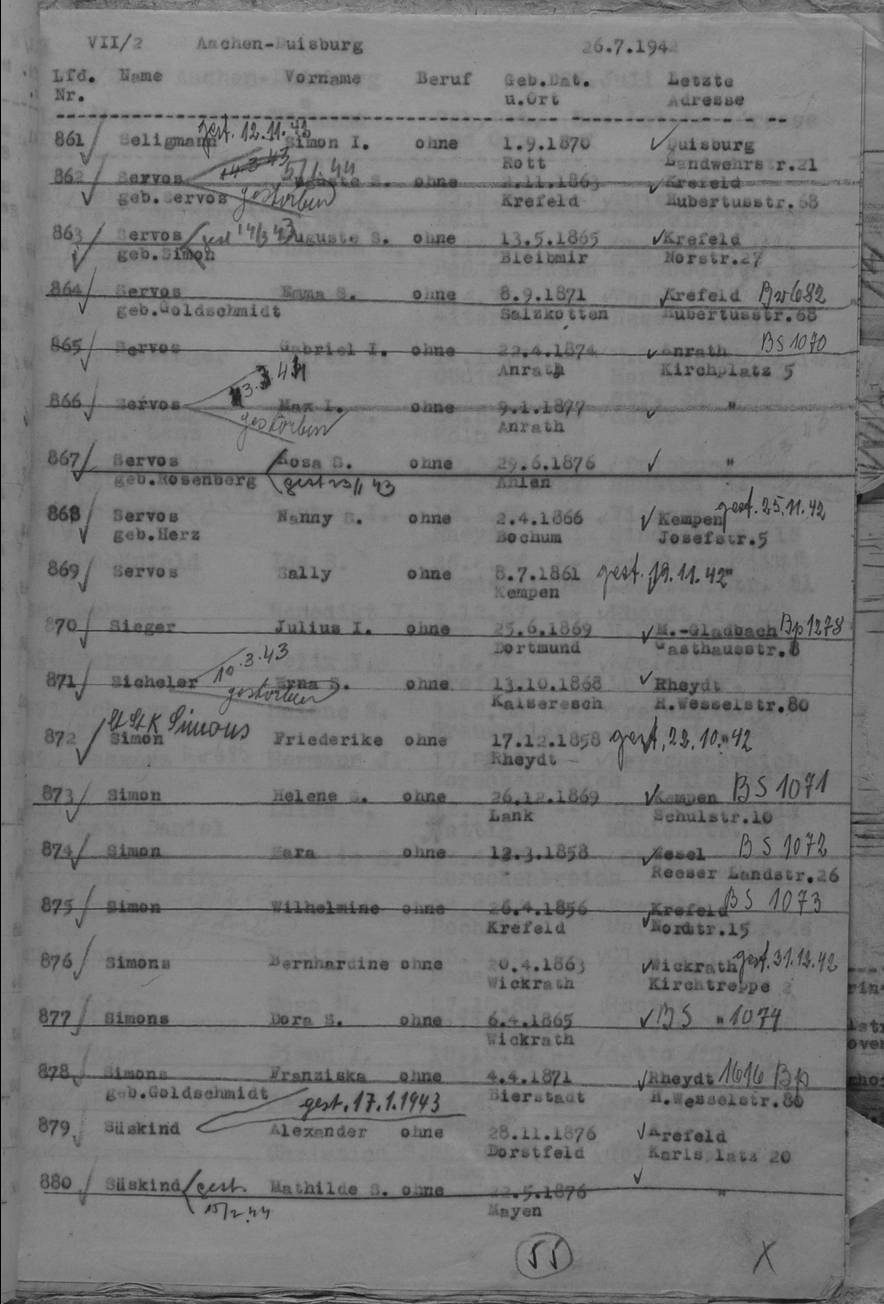 VII/2 Aachen-Duisburg 26.7.1942
Lfd. Name Vorname Beruf Geb.Dat. Letzte
Nr. u.Ort Adresse
861 Seligmann gest. 12.11.42 Simon I. ohne 1.9.1870 Duisburg
Rott Landwehrstr.21
862 Servos ohne 1863 Krefeld
geb.Servos gestorben Krefeld Hubertusstr.68
863 Servos gest 14/3 43 Auguste S. ohne 13.5.1865 Krefeld
geb.Simon Norstr.27
864 Servos Emma S. ohne 8.9.1871 Krefeld 682
geb.Goldschmidt Salzkotten Hubertusstr.68
865 Servos Gabriel I. ohne 22.4.1874 Anrath BS 1070
Anrath Kirchplatz 5
3.43
866 Servos Max I. ohne 9.1.1877 "
gestorben Anrath
867 Servos Rosa S. ohne 29.6.1876 "
geb.Rosenberg gest 43 Ahlen
868 Servos Nanny S. ohne 2.4.1866 Kempen gest. 25.11.42
geb.Herz Bochum Josefstr.5
869 Servos Sally ohne 8.7.1861 gest. 19.11.42 "
Kempen
870 Sieger Julius I. ohne 25.6.1869 M.-Gladbach Bp 1278
Dortmund Gasthausstr.
10.3.43
871 Sicheler Erna S. ohne 13.10.1868 Rheydt
gestorben Kaisersesch H.Wesselstr.80
Simons
872 Simon Friederike ohne 17.12.1858 gest. 10. "42
Rheydt
873 Simon Helene S. ohne 26.12.1869 Kempen BS 1071
Lank Schulstr.10
874 Simon Sara ohne 12.3.1858 Wesel BS 1072
Reeser Landstr.26
875 Simon Wilhelmine ohne 26.4.1856 Krefeld BS 1073
Krefeld Nordtr.15
876 Simons Bernhardine ohne 20.4.1863 Wickrath gest. 31.12.42
Wickrath Kirchtreppe 2
877 Simons Dora S. ohne 6.4.1865 BS " 1074
Wickrath
878 Simons Franziska ohne 4.4.1871 Rheydt 1616 Bp
geb.Goldschmidt Bierstadt H.Wesselstr.80
gest. 17.1.1943
879 Süskind Alexander ohne 28.11.1876 Krefeld
Dorstfeld Karlsplatz 20
880 Süskind gest. Mathilde S. ohne 5.1876 "
15/2.44 Mayen
55 X